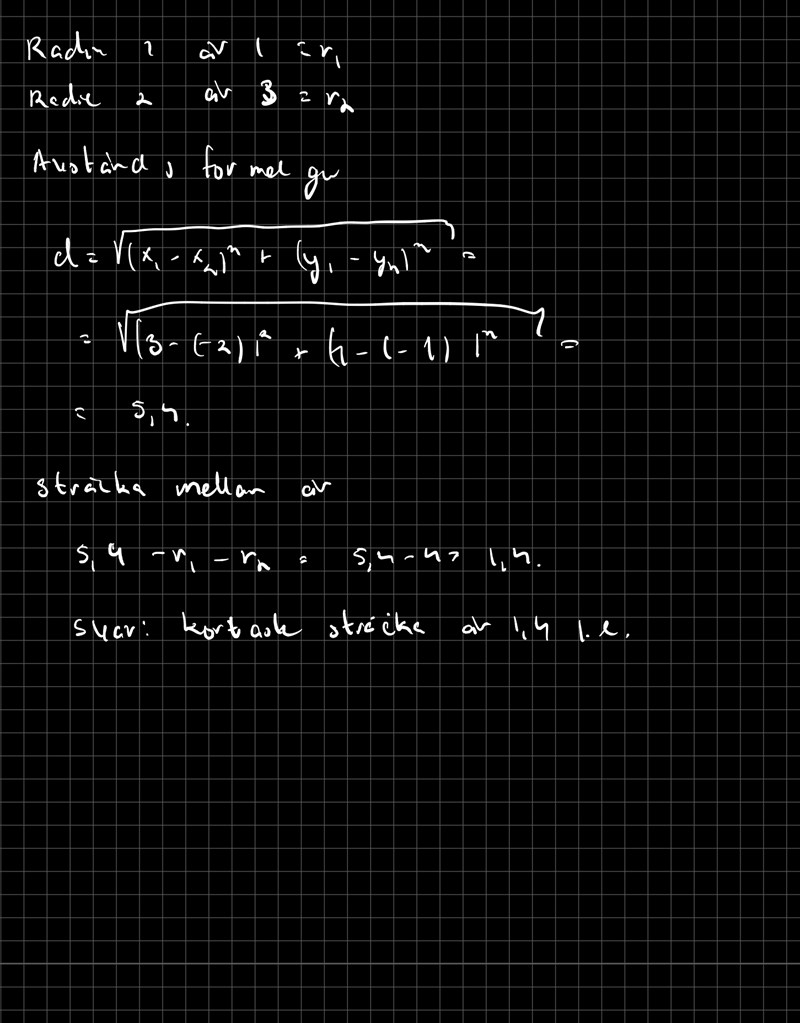 Radie 1 är 1 = r₁
Radie 2 är 3 = r₂
Avstånds formel ger
d = √((x₁ - x₂)² + (y₁ - y₂)²) =
= √((3 - (-2))² + (1 - (-1))²) =
= 5,4.
sträcka mellan är
5,4 - r₁ - r₂ = 5,4 - 4 = 1,4.
Svar: kortaste sträcka är 1,4 l.e.